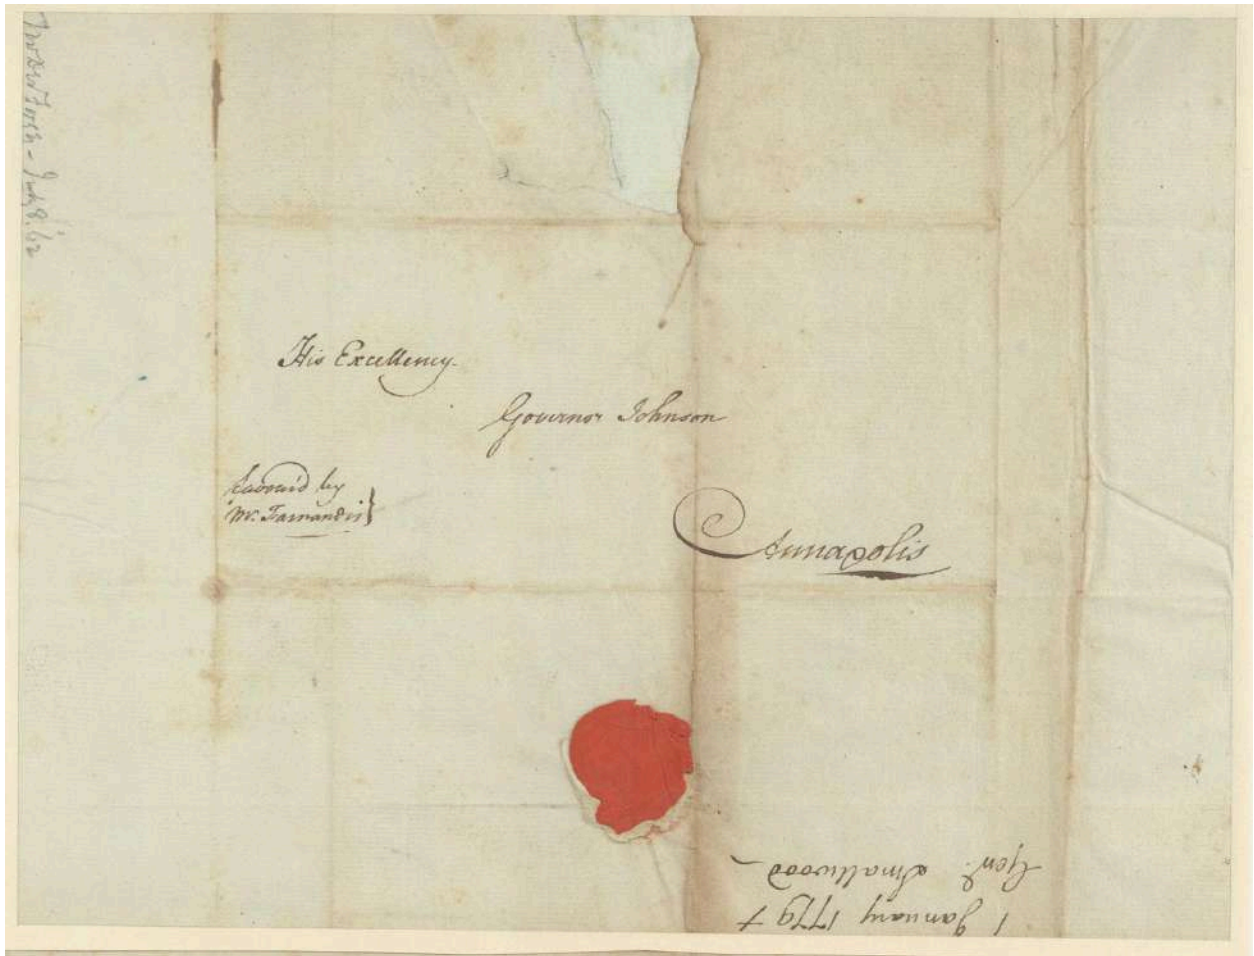 His Excellency
Governor Johnson
Favour'd by
Mr. Farnandis
Annapolis
1 January 1779
Genl. Smallwood
July 8. 62